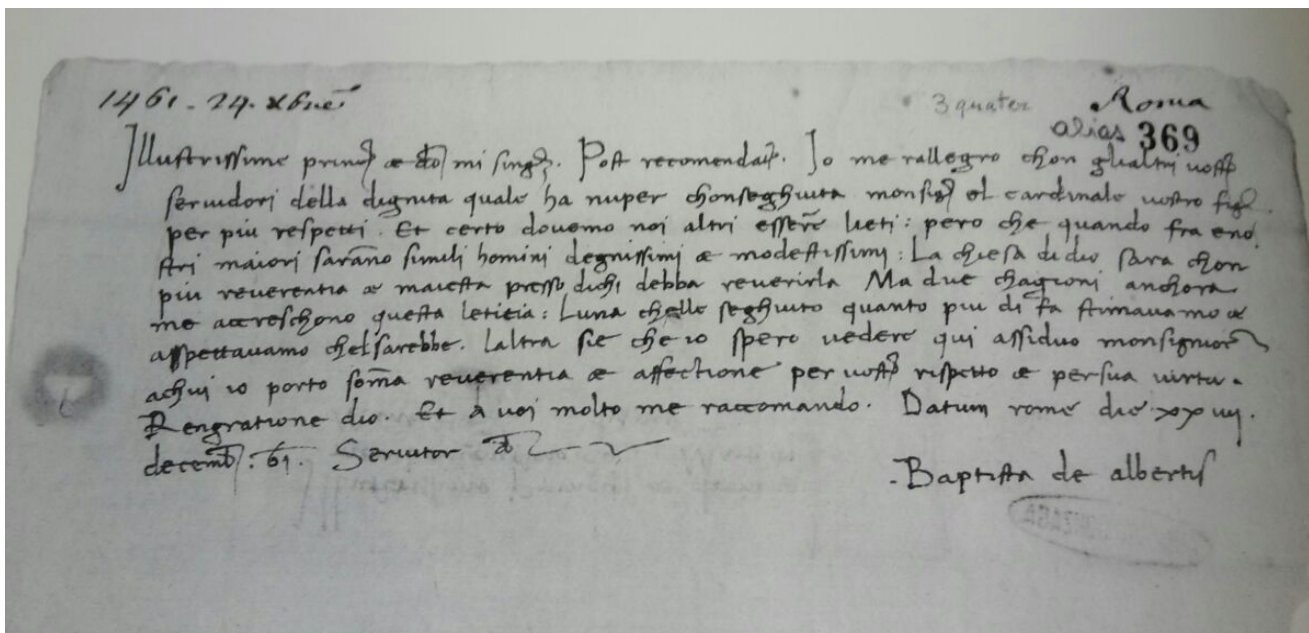 1461 - 24. Xbre
3 quater
Roma
alias 369
Illustrissime princ et do mi sing. Post recomendat. Io me rallegro chon gli altri vost
servidori della dignita quale ha nuper chonseghuita monsig el cardinale vostro figl.
per piu respetti. Et certo dovemo noi altri essere lieti: pero che quando fra eno
stri maiori sarano simili homini degnissimi et modestissimi: La chiesa di dio sara chon
piu reverentia et maiesta presso dichi debba reverirla Ma due chagioni anchora
me accreschono questa leticia: Luna chelle seghuito quanto piu di fa stimavamo et
aspettavamo chelsarebbe. laltra sie che io spero vedere qui assiduo monsignior
achui io porto soma reverentia et affectione per vost rispetto et persua virtu.
Rengratione dio. Et a voi molto me raccomando. Datum rome die xxiiij.
decemb: 61. Servitor
Baptista de albertis